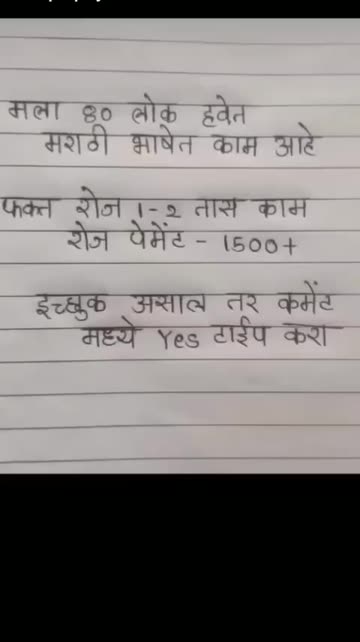 मला 80 लोक हवेत
मराठी भाषेत काम आहे
फक्त रोज 1-2 तास काम
रोज पेमेंट - 1500+
इच्छुक असाल तर कमेंट
मध्ये Yes टाईप करा